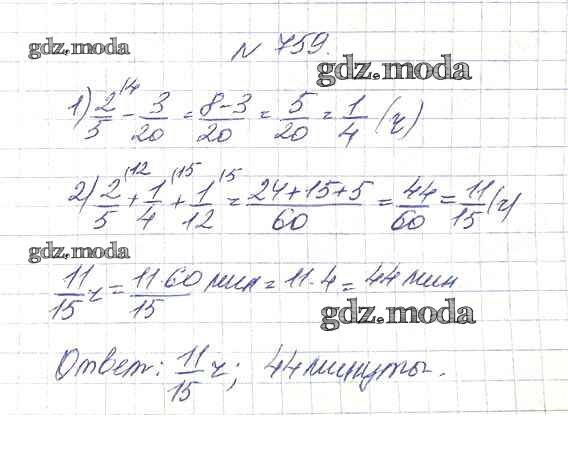 gdz.moda
N 759.
gdz.moda
1) 2/5 (4 - 3/20 = 8-3/20 = 5/20 = 1/4 (ч)
2) 2/5 (12 + 1/4 (15 + 1/12 (5 = 24+15+5/60 = 44/60 = 11/15 (ч)
gdz.moda
11/15 ч = 11·60/15 мин = 11·4 = 44 мин
gdz.moda
Ответ: 11/15 ч; 44 минуты.